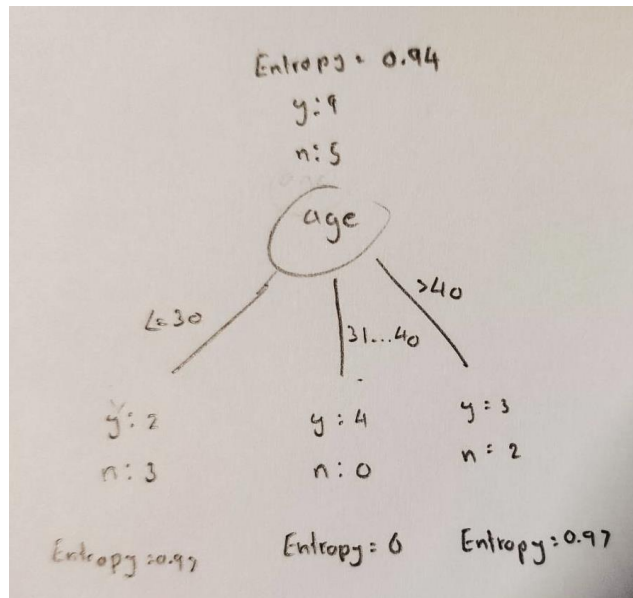 Entropy = 0.94
y: 9
n: 5
age
<=30
31...40
>40
y: 2
n: 3
y: 4
n: 0
y = 3
n = 2
Entropy=0.97
Entropy = 0
Entropy=0.97